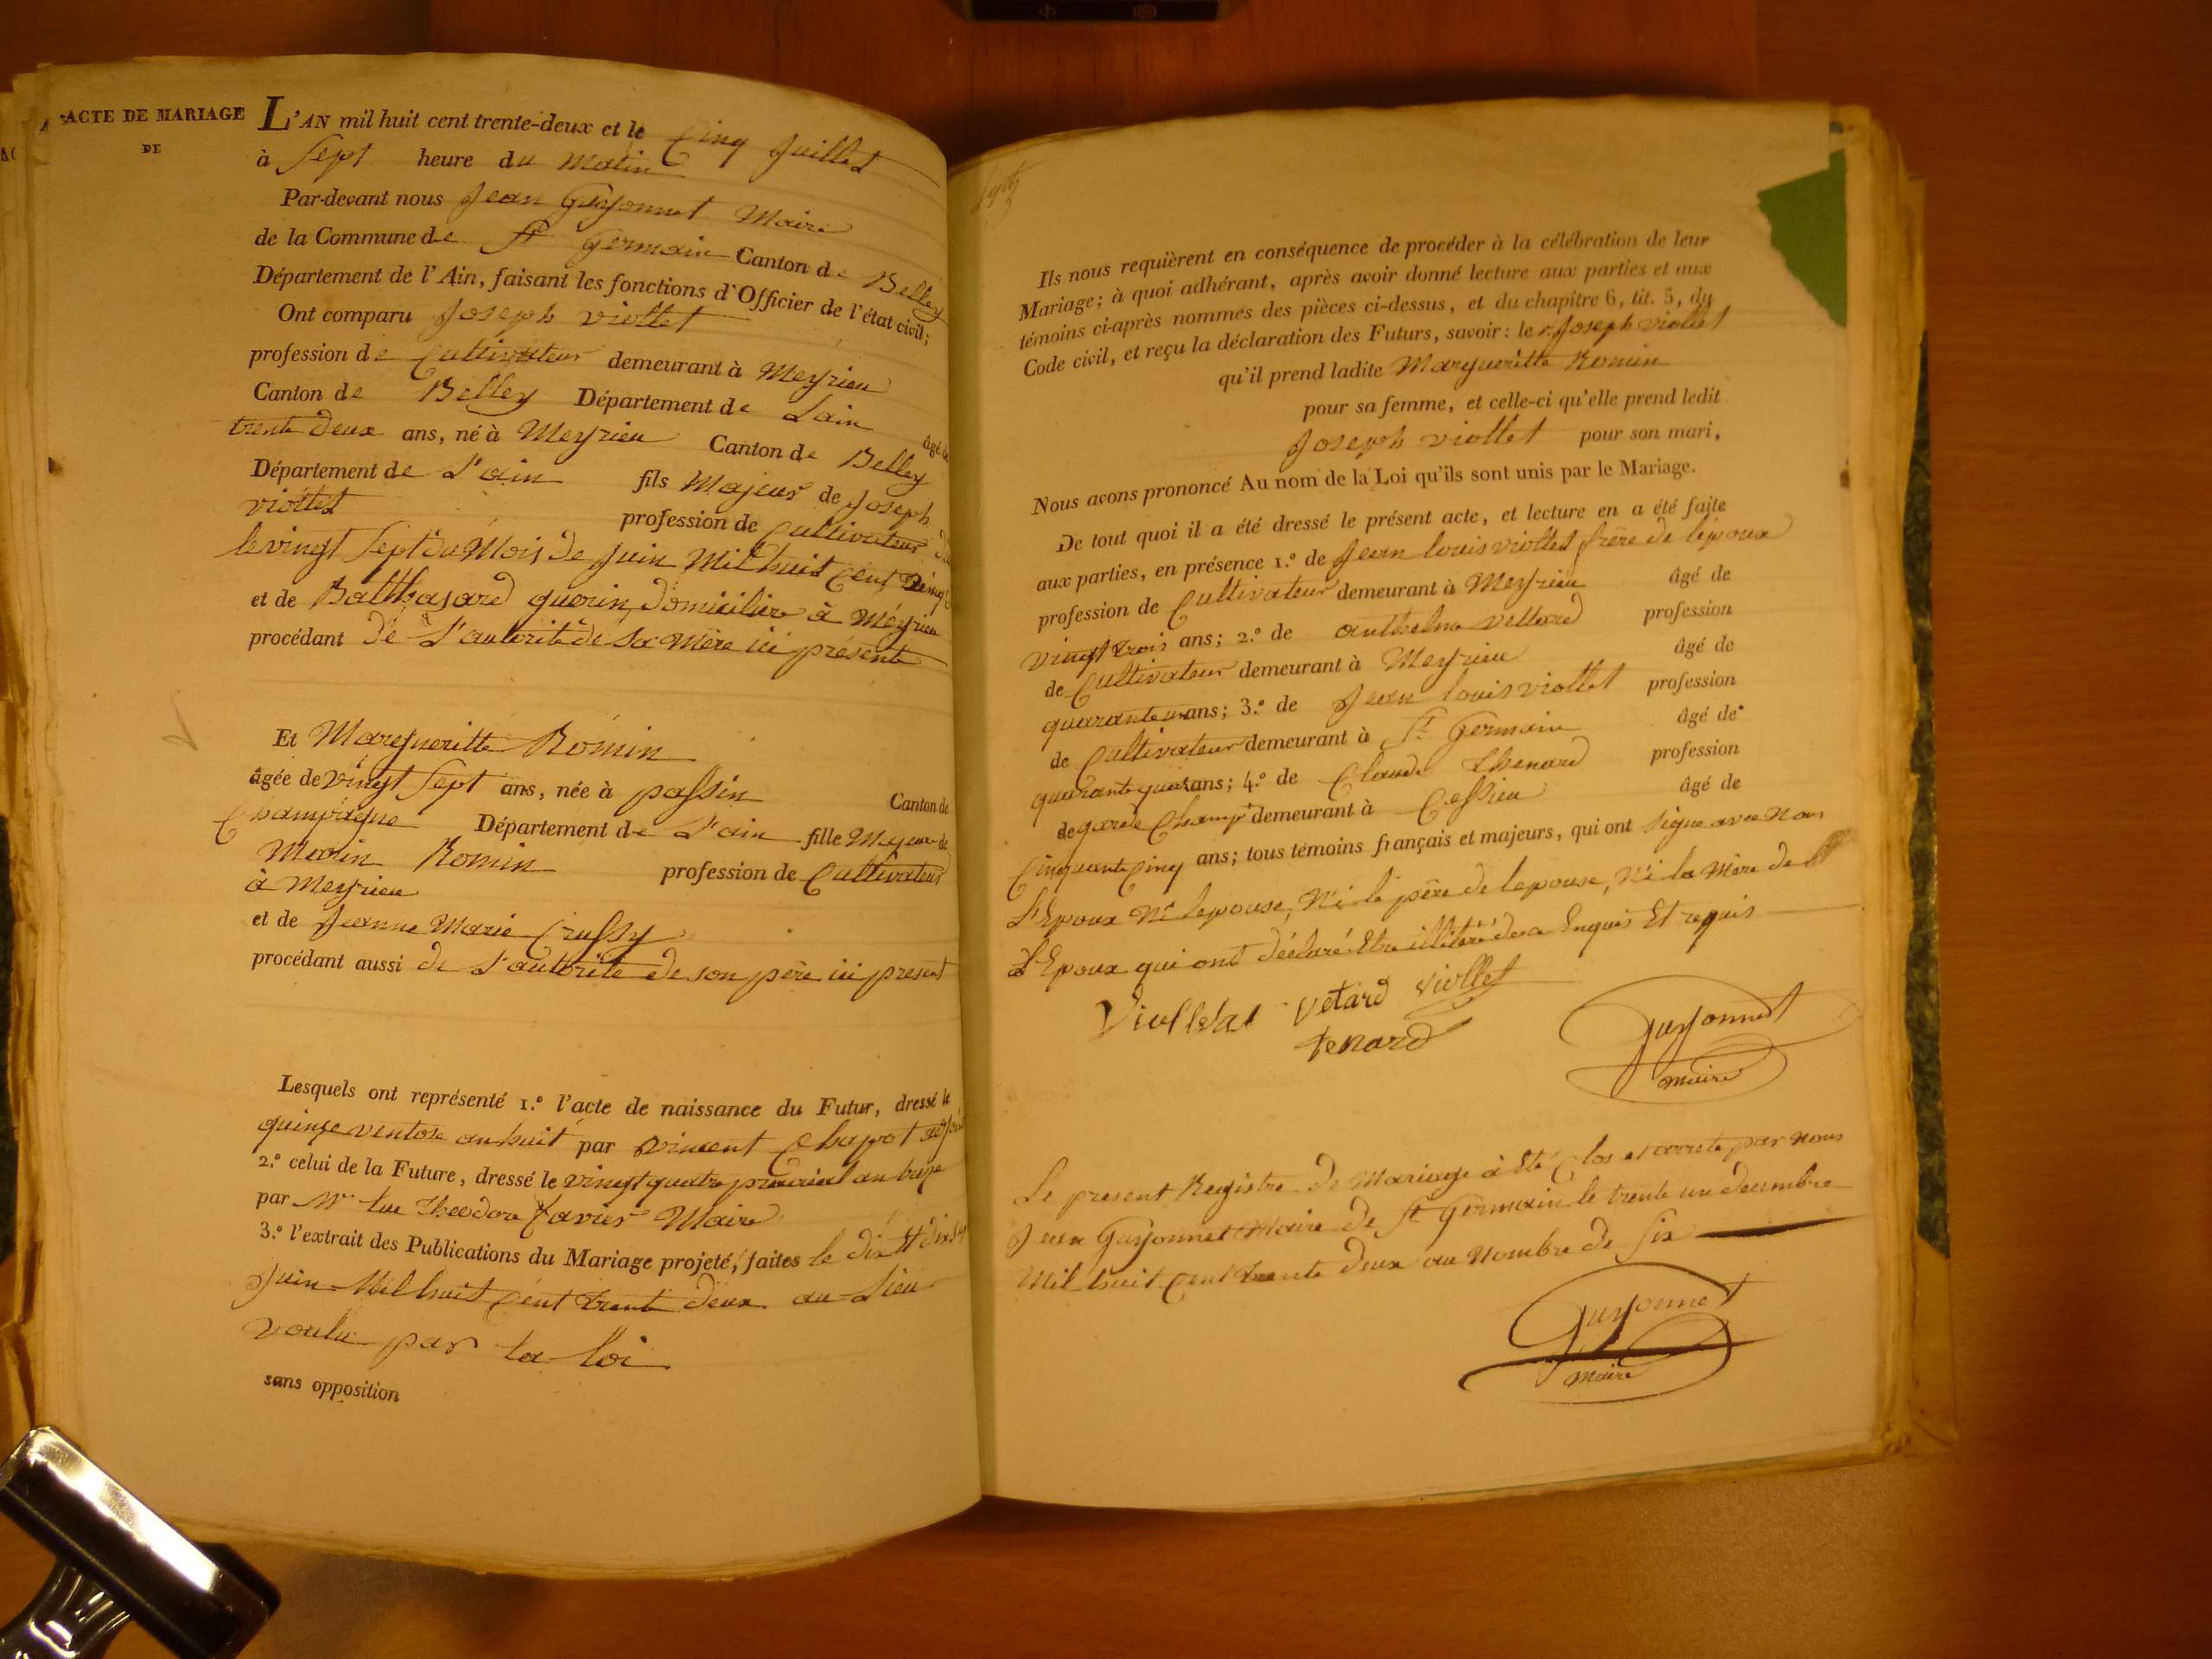 ACTE DE MARIAGE
DE
L'AN mil huit cent trente-deux et le Cinq Juillet
à Sept heure du matin
Par-devant nous Jean Guyonnet Maire
de la Commune de St Germain Canton de Belley
Département de l'Ain, faisant les fonctions d'Officier de l'état civil;
Ont comparu Joseph viollet
profession de Cultivateur demeurant à Meyrieu
Canton de Belley Département de Lain âgé de
trente deux ans, né à Meyrieu Canton de Belley
Département de L'ain fils Majeur de Joseph
viollet profession de Cultivateur
le vingt Sept du Mois de Juin Mil huit Cent
et de Balthasard guerin, domicilier à Meyrieu
procédant de L'autorité de sa Mère ici présente
Et Margueritte Romin
âgée de vingt Sept ans, née à passin Canton de
Champagne Département de L'ain fille Majeur de
Marin Romin profession de Cultivateur
à Meyrieu
et de Jeanne Marie Crussy
procédant aussi de L'autorité de son père ici present
Lesquels ont représenté 1.º l'acte de naissance du Futur, dressé le
quinze ventose an huit par vincent Chapot
2.º celui de la Future, dressé le vingt quatre prairial an treize
par Mr luc Theodore Xavier Maire
3.º l'extrait des Publications du Mariage projeté, faites le dix Et dix Sept
Juin Mil huit Cent trente deux au Lieu
voulu par la loi
sans opposition
Ils nous requièrent en conséquence de procéder à la célébration de leur
Mariage; à quoi adhérant, après avoir donné lecture aux parties et aux
témoins ci-après nommés des pièces ci-dessus, et du chapitre 6, tit. 5, du
Code civil, et reçu la déclaration des Futurs, savoir: le r. Joseph viollet
qu'il prend ladite Margueritte Romin
pour sa femme, et celle-ci qu'elle prend ledit
Joseph viollet pour son mari,
Nous avons prononcé Au nom de la Loi qu'ils sont unis par le Mariage.
De tout quoi il a été dressé le présent acte, et lecture en a été faite
aux parties, en présence 1.º de Jean louis viollet frère de lepoux
profession de Cultivateur demeurant à Meyrieu âgé de
vingt trois ans; 2.º de anthelme vettard profession
de Cultivateur demeurant à Meyrieu âgé de
quarante un ans; 3.º de Jean louis viollet profession
de Cultivateur demeurant à St Germain âgé de
quarante quat ans; 4.º de Claude Thenard profession
de garde Champ demeurant à Cessieu âgé de
Cinquante Cinq ans; tous témoins français et majeurs, qui ont signe avec Nous
L'Epoux Ni lepouse, Ni le père de lepouse, Ni la Mère de
L'Epoux qui ont déclaré Etre illétéré de ce Enquis Et requis
Violletat vetard viollet
tenard
Guyonnet
maire
Le present Registre de Mariage à Eté Clos et arreté par Nous
Jean Guyonnet Maire de St Germain le trente un decembre
Mil huit Cent trente deux au Nombre de Six
Guyonnet
Maire